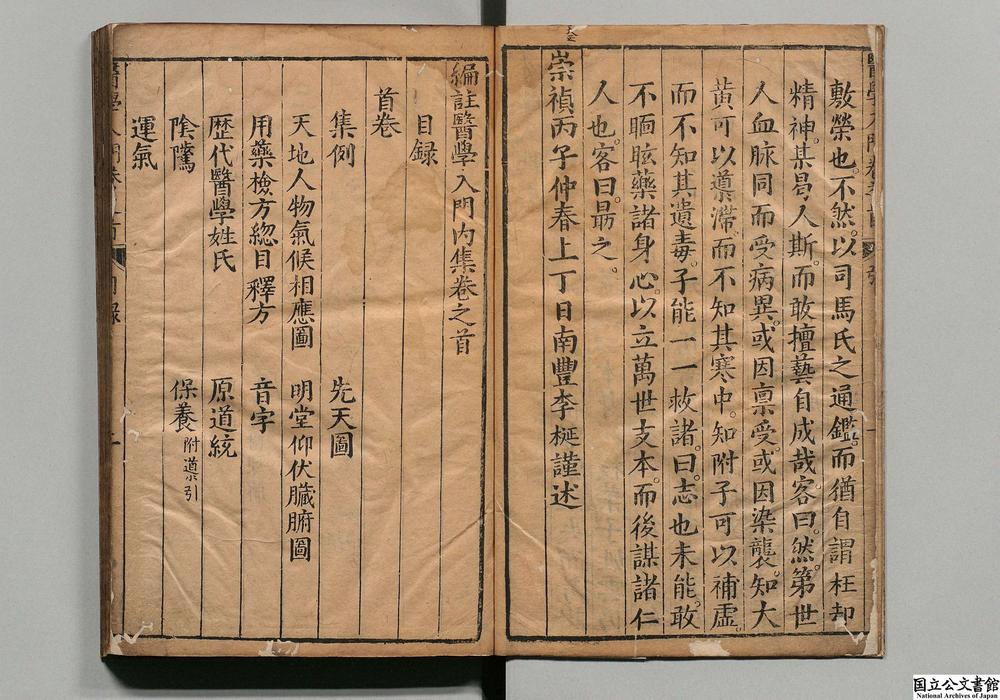 敷榮也。不然。以司馬氏之通鑑。而猶自謂枉却
精神。某曷人斯。而敢擅藝自成哉。客曰。然。第世
人血脉同而受病異。或因禀受。或因染襲。知大
黃可以導滯。而不知其寒中。知附子可以補虛。
而不知其遺毒。子能一一救諸。曰。志也未能。敢
不瞑眩藥諸身心。以立萬世支本。而後謀諸仁
人也。客曰。勗之。
崇禎丙子仲春上丁日南豐李梴謹述
編註醫學入門內集卷之首
目録
首卷
集例 先天圖
天地人物氣候相應圖 明堂仰伏臟腑圖
用藥檢方緫目 釋方 音字
歷代醫學姓氏 原道統
陰騭 保養附導引
運氣
国立公文書館
National Archives of Japan